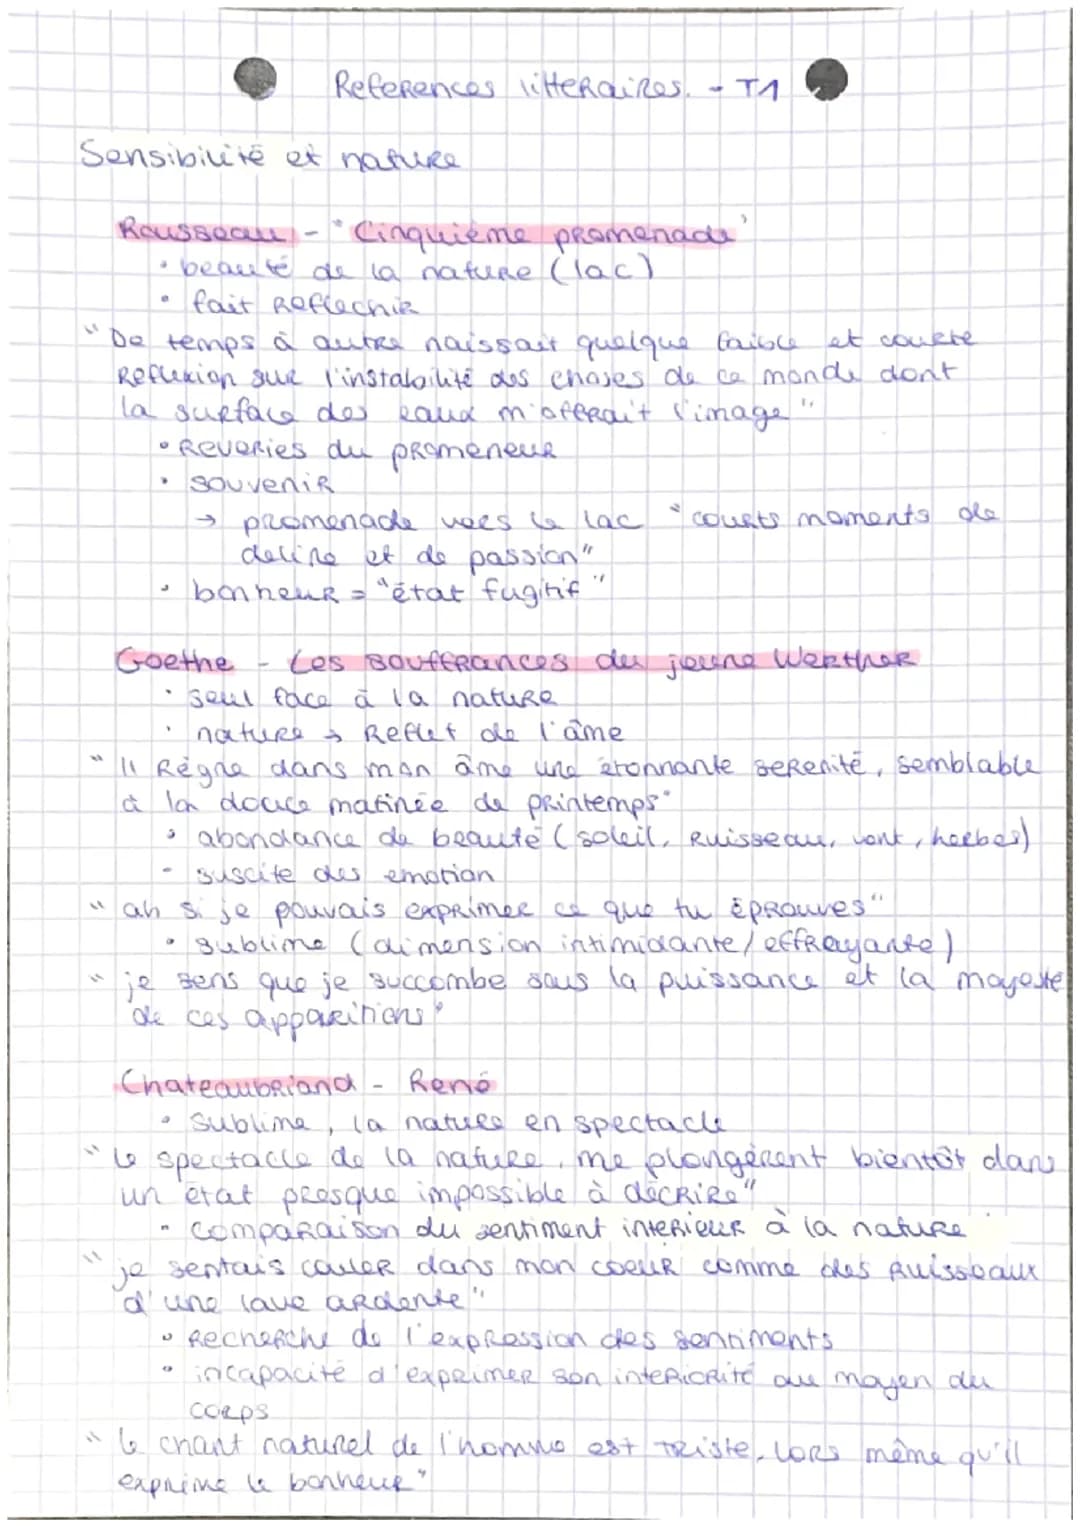 References littéraires. - T1
Sensibilité et nature
Rousseau - "Cinquième promenade"
• beauté de la nature (lac)
• fait reflechir
"De temps à autre naissait quelque faible et courte
reflexion sur l'instabilité des choses de ce monde dont
la surface des eaux m'offrait l'image"
• Reveries du promeneur
• souvenir
→ promenade vers le lac "courts moments de
delire et de passion"
• bonheur = "état fugitif"
Goethe - Les souffrances du jeune Werther
• seul face à la nature
• nature → Reflet de l'âme
"Il Règne dans mon âme une étonnante serenité, semblable
à la douce matinée de printemps"
• abondance de beauté (soleil, Ruisseau, vent, herbes)
- suscite des emotion
"ah si je pouvais exprimer ce que tu éprouves"
• sublime (dimension intimidante/effrayante)
"je sens que je succombe sous la puissance et la majesté
de ces apparitions"
Chateaubriand - René
• Sublime, la nature en spectacle
"le spectacle de la nature, me plongèrent bientôt dans
un état presque impossible à décrire"
- comparaison du sentiment interieur à la nature
"je sentais couler dans mon coeur comme des Ruisseaux
d'une lave ardente"
• Recherche de l'expression des sentiments
• incapacité d'exprimer son interiorité au moyen du
corps
"le chant naturel de l'homme est triste, lors même qu'il
exprime le bonheur"